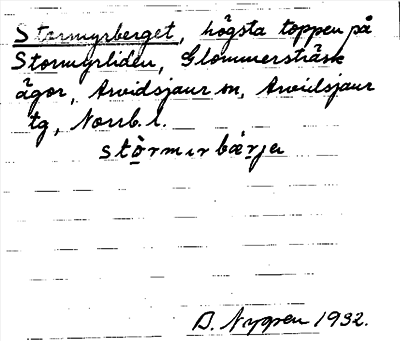 Stormyrberget, högsta toppen på
Stormyrliden, Glommersträsk
ägor, Arvidsjaur sn, Arvidsjaur
tg, Norrb. l.
stòrmırbärje
D. Nygren 1932.